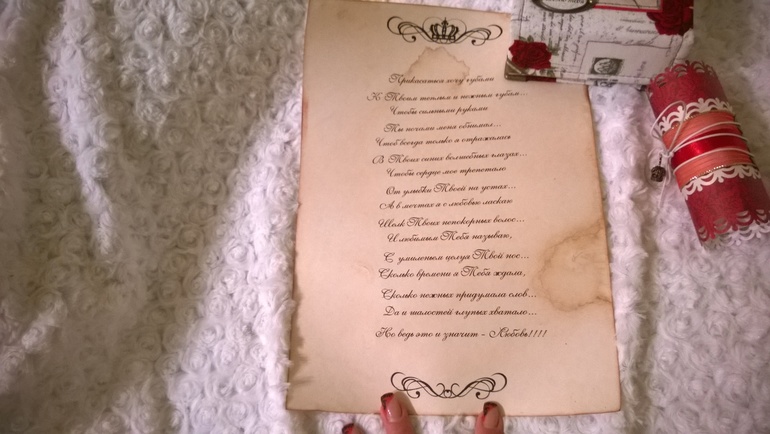 Прикасаться хочу губами
К Твоим теплым и нежным губам...
Чтобы сильными руками
Ты ночами меня обнимал...
Чтоб всегда только я отражалась
В Твоих синих волшебных глазах...
Чтобы сердце мое трепетало
От улыбки Твоей на устах...
А в мечтах я с любовью ласкаю
Шелк Твоих непокорных волос...
И любимым Тебя называю,
С умиленьем целуя Твой нос...
Сколько времени я Тебя ждала,
Сколько нежных придумала слов...
Да и шалостей глупых хватало...
Но ведь это и значит - Любовь!!!!